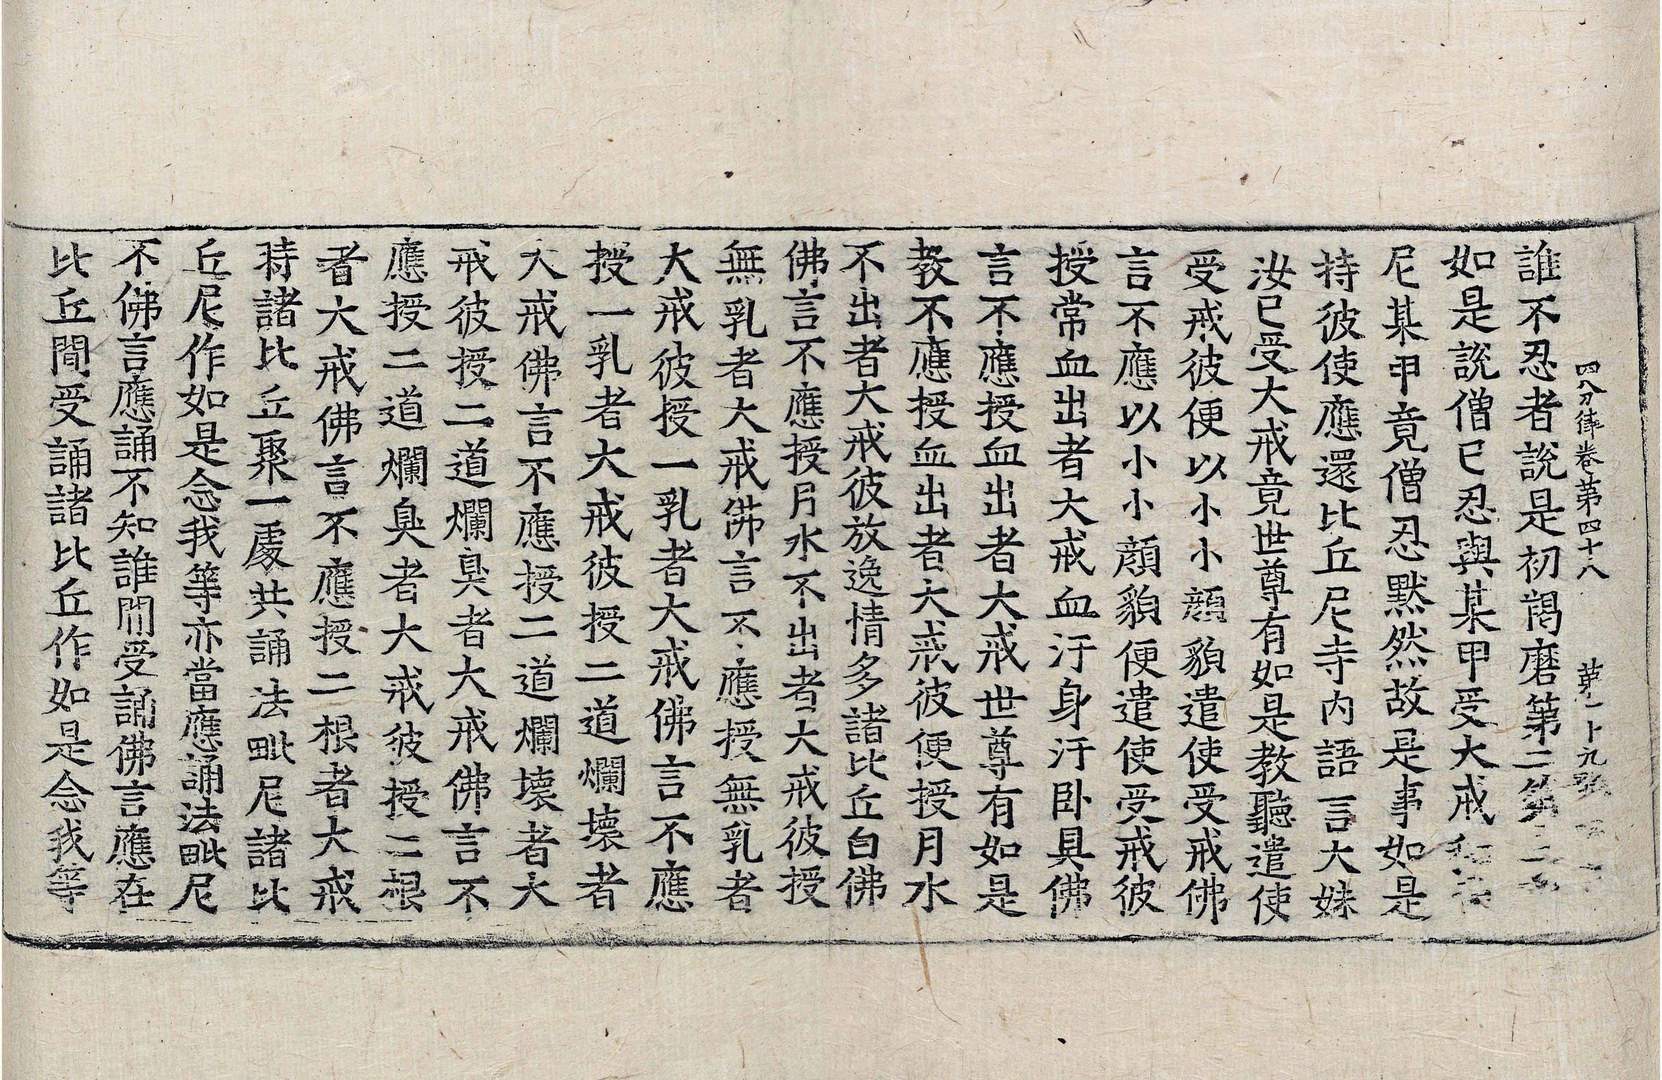 四分律卷第四十八 第
誰不忍者說是初羯磨第二第三
如是說僧已忍與某甲受大戒和
尼某甲竟僧忍默然故是事如是
持彼使應還比丘尼寺內語言大妹
汝已受大戒竟世尊有如是教聽遣使
受戒彼便以小小顏貌遣使受戒佛
言不應以小小顏貌便遣使受戒彼
授常血出者大戒血汙身汙臥具佛
言不應授血出者大戒世尊有如是
教不應授血出者大戒彼便授月水
不出者大戒彼放逸情多諸比丘白佛
佛言不應授月水不出者大戒彼授
無乳者大戒佛言不應授無乳者
大戒彼授一乳者大戒佛言不應
授一乳者大戒彼授二道爛壞者
大戒佛言不應授二道爛壞者大
戒彼授二道爛臭者大戒佛言不
應授二道爛臭者大戒彼授二根
者大戒佛言不應授二根者大戒
時諸比丘聚一處共誦法毗尼諸比
丘尼作如是念我等亦當應誦法毗尼
不佛言應誦不知誰間受誦佛言應在
比丘間受誦諸比丘作如是念我等